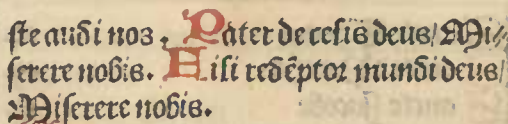 ste audi nos. Pater de celis deus/ Mi//
serere nobis. Fili redẽptor mundi deus/
Miserere nobis.